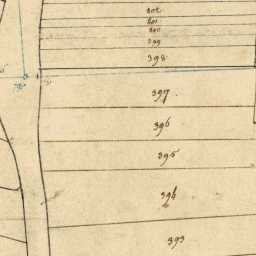 302
301
300
299
398
397
396
395
394
393